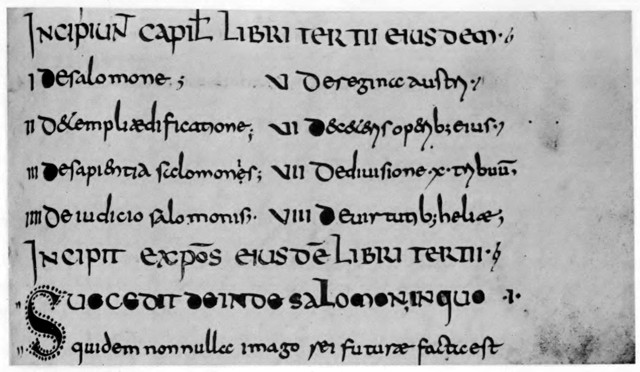 INCIPIUNT CAPIT̄ LIBRI TERTII EIUSDEM·
I De salomone; V De regina austri;
II De templi ædificatione; VI De ceteris operib; eius;
III De sapientia salomonis; VII De diuisione ·x· tribuū;
IIII De iudicio salomonis· VIII De uirtutib; heliæ;
INCIPIT EXPOS̄ EIUSDĒ LIBRI TERTII·
SUCCEDIT DEINDE SALOMON, IN QUO ·I·
quidem non nulla imago rei futuræ facta est